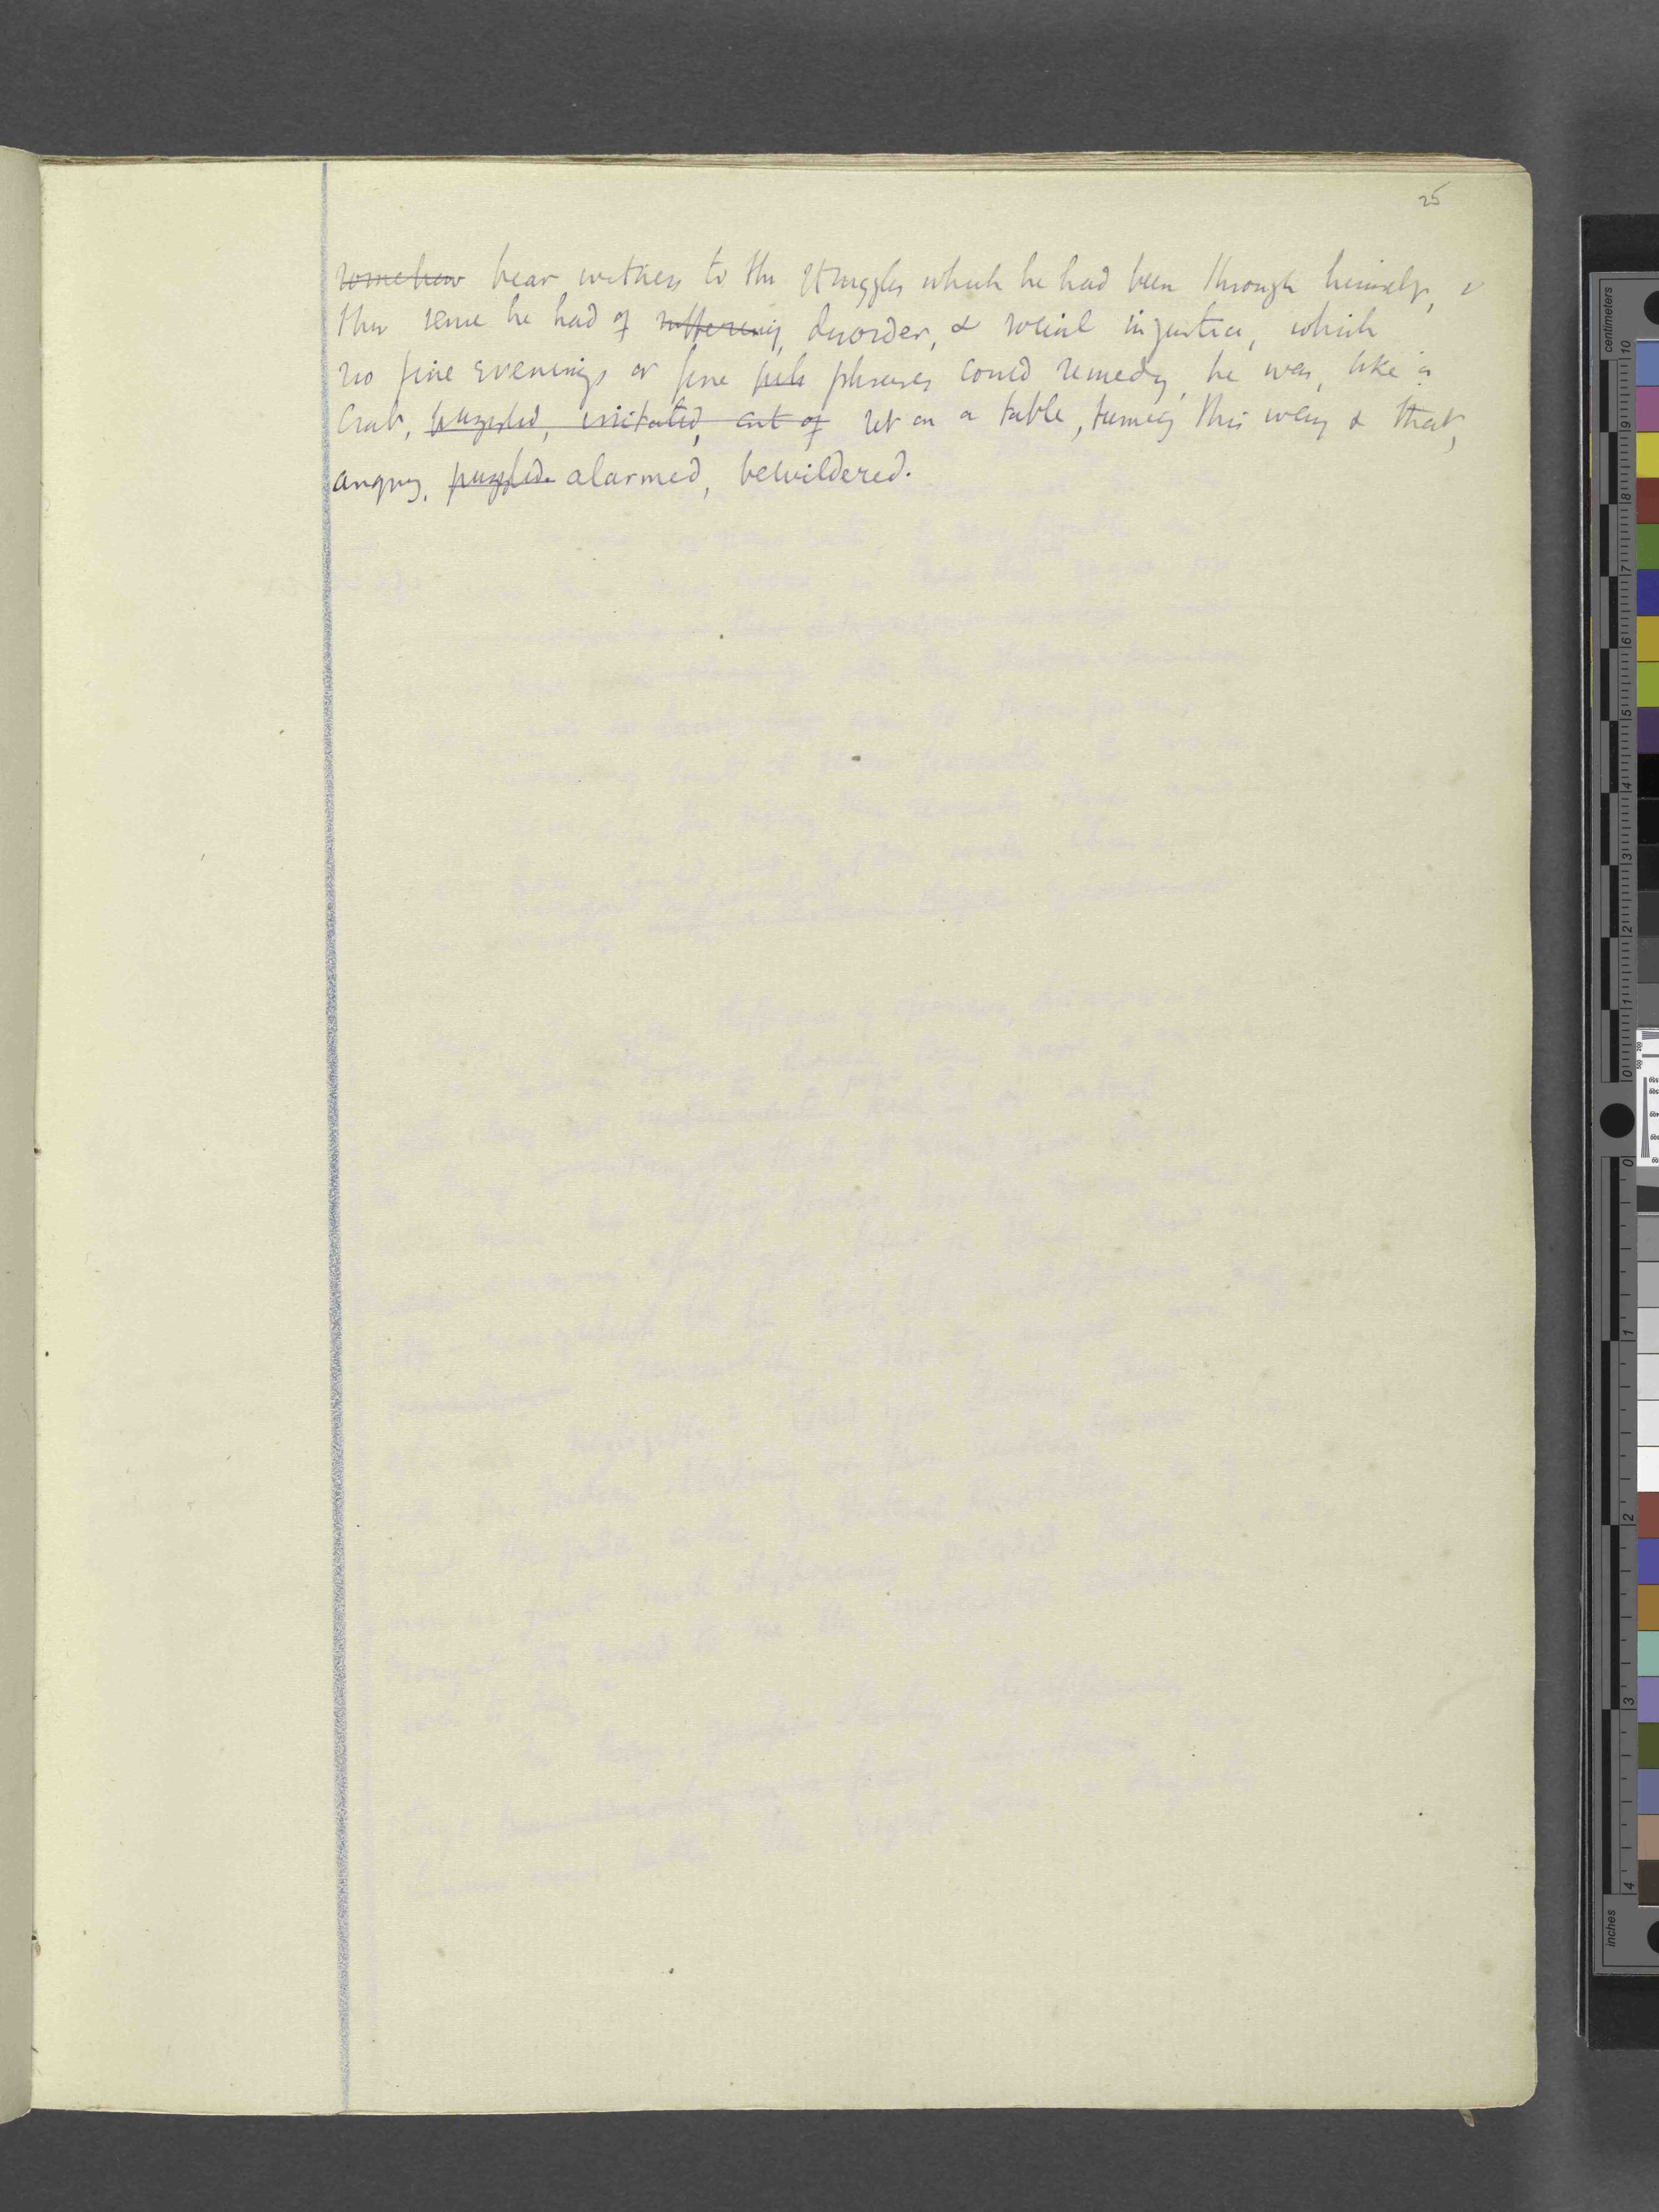 25
somehow bear witness to the struggles which he had been through himself, &
the sense he had of suffering, disorder, & social injustice, which
no fine evenings or fine phrases could remedy, he was, like a
crab, puzzled, irritated, out of set on a table, turning this way & that,
angry, puzzled. alarmed, bewildered.